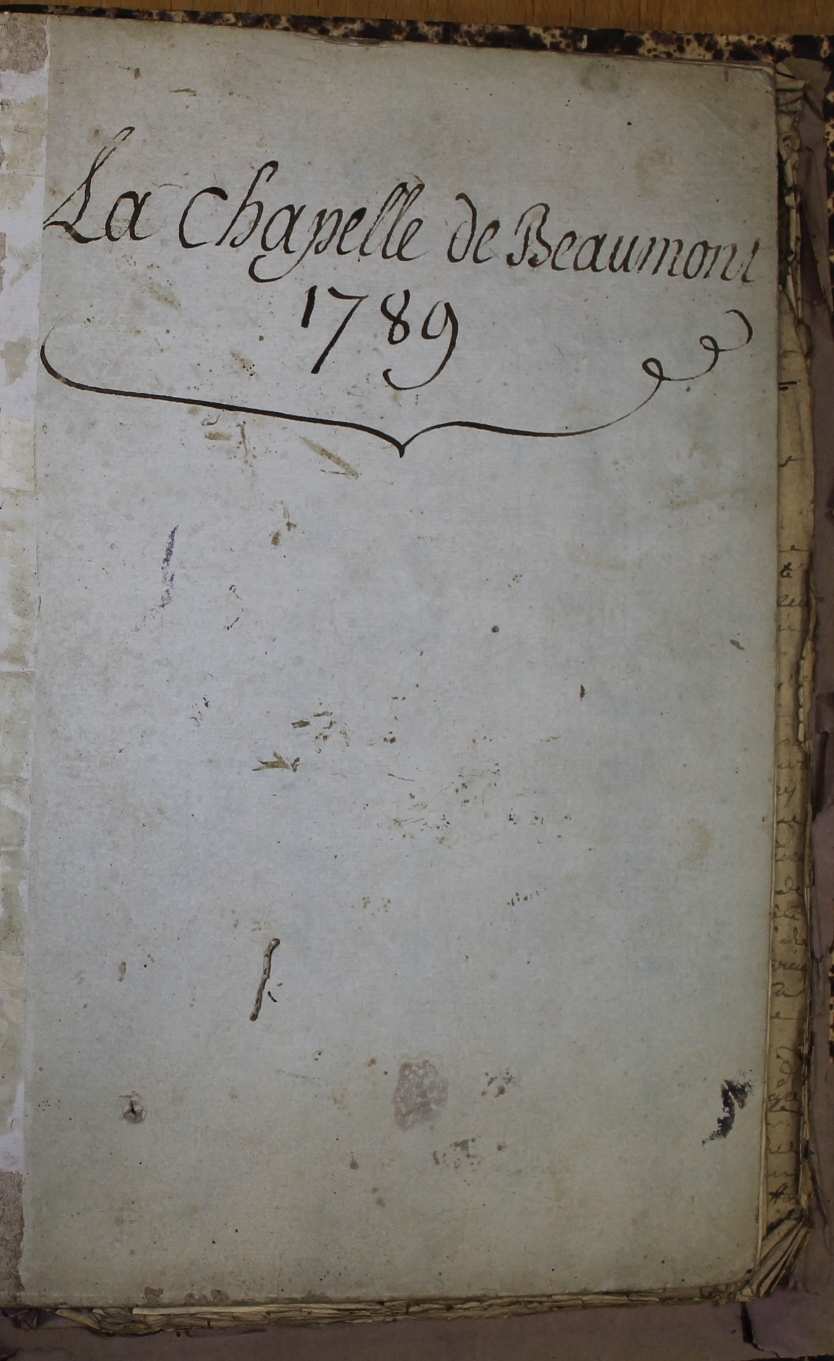 La Chapelle de Beaumont
1789